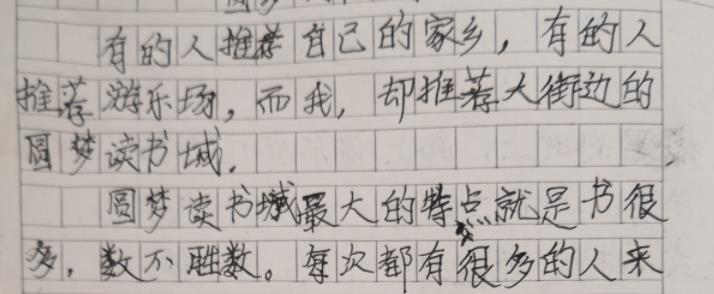 有的人推荐自己的家乡，有的人
推荐游乐场，而我，却推荐大街边的
圆梦读书城，
圆梦读书城最大的特点就是书很
多，数不胜数。每次都有很多的人来